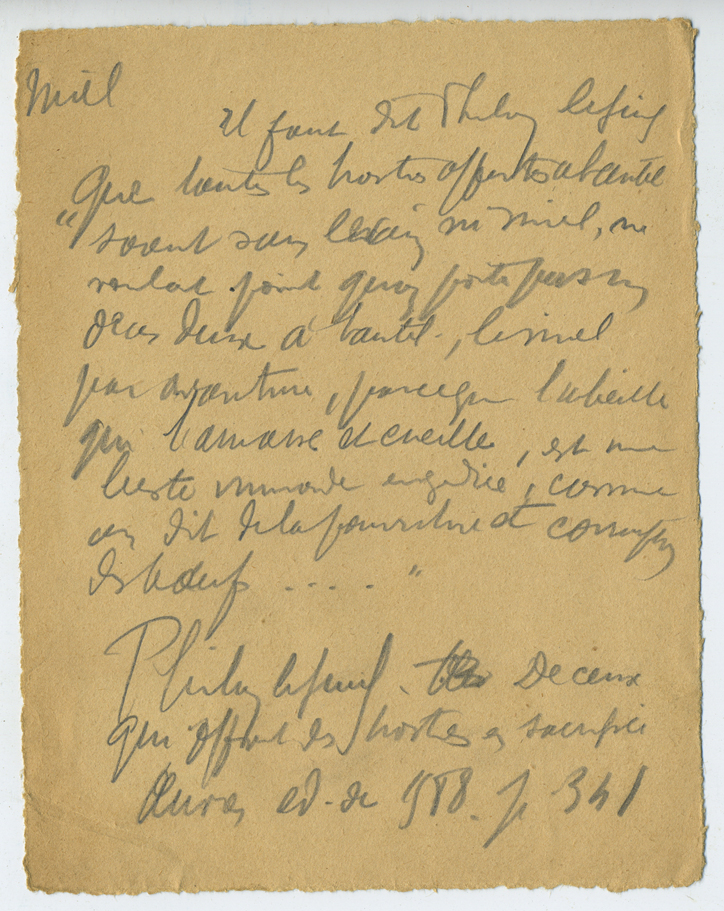 Miel
Il faut dit Philon le Juif
Que toutes les hosties offertes a l'autel
" soient sans levain ni miel, ne
voulat point quon porte pas un
de ces deux a l'autel, le miel
par avanture, parceque l'abeille
qui l'amasse et cueille, est une
beste immonde engedrée, comme
on dit de la pourriture et corruption
des boeufs ..... "
Philon le Juif. De ceux
qui offrent des hosties en sacrifice
Œuvres ed. de 1588. p 341